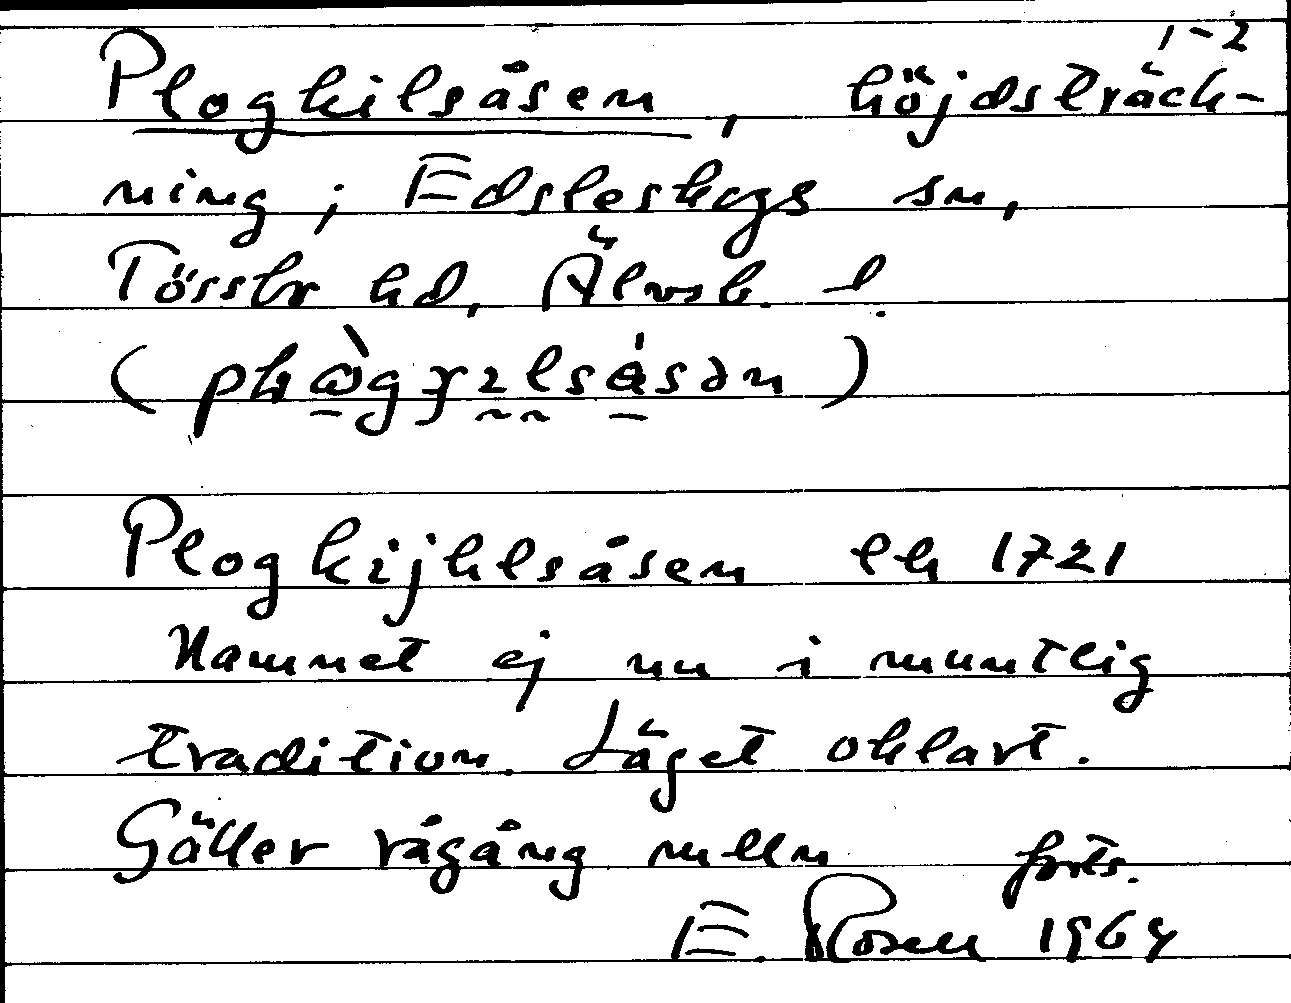 1-2
Plogkilsåsen, höjdsträck-
ning; Edsleskogs sn,
Tössbo hd, Älvsb. l.
Plogkijhlsåsen lk 1721
Namnet ej nu i muntlig
tradition. Läget oklart.
Gäller rågång mellan forts.
E. Rosell 1964